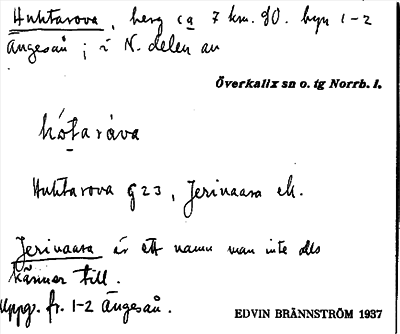 Huhtarova, berg ca 7 km. SO. byn 1-2
Ängeså; i N. delen av
Överkalix sn o. tg Norrb. l.
hótaràva
Huhtarova G 23, Jerivaara ek.
Jerivaara är ett namn man inte alls
känner till.
Uppg. fr. 1-2 Ängeså.
EDVIN BRÄNNSTRÖM 1937